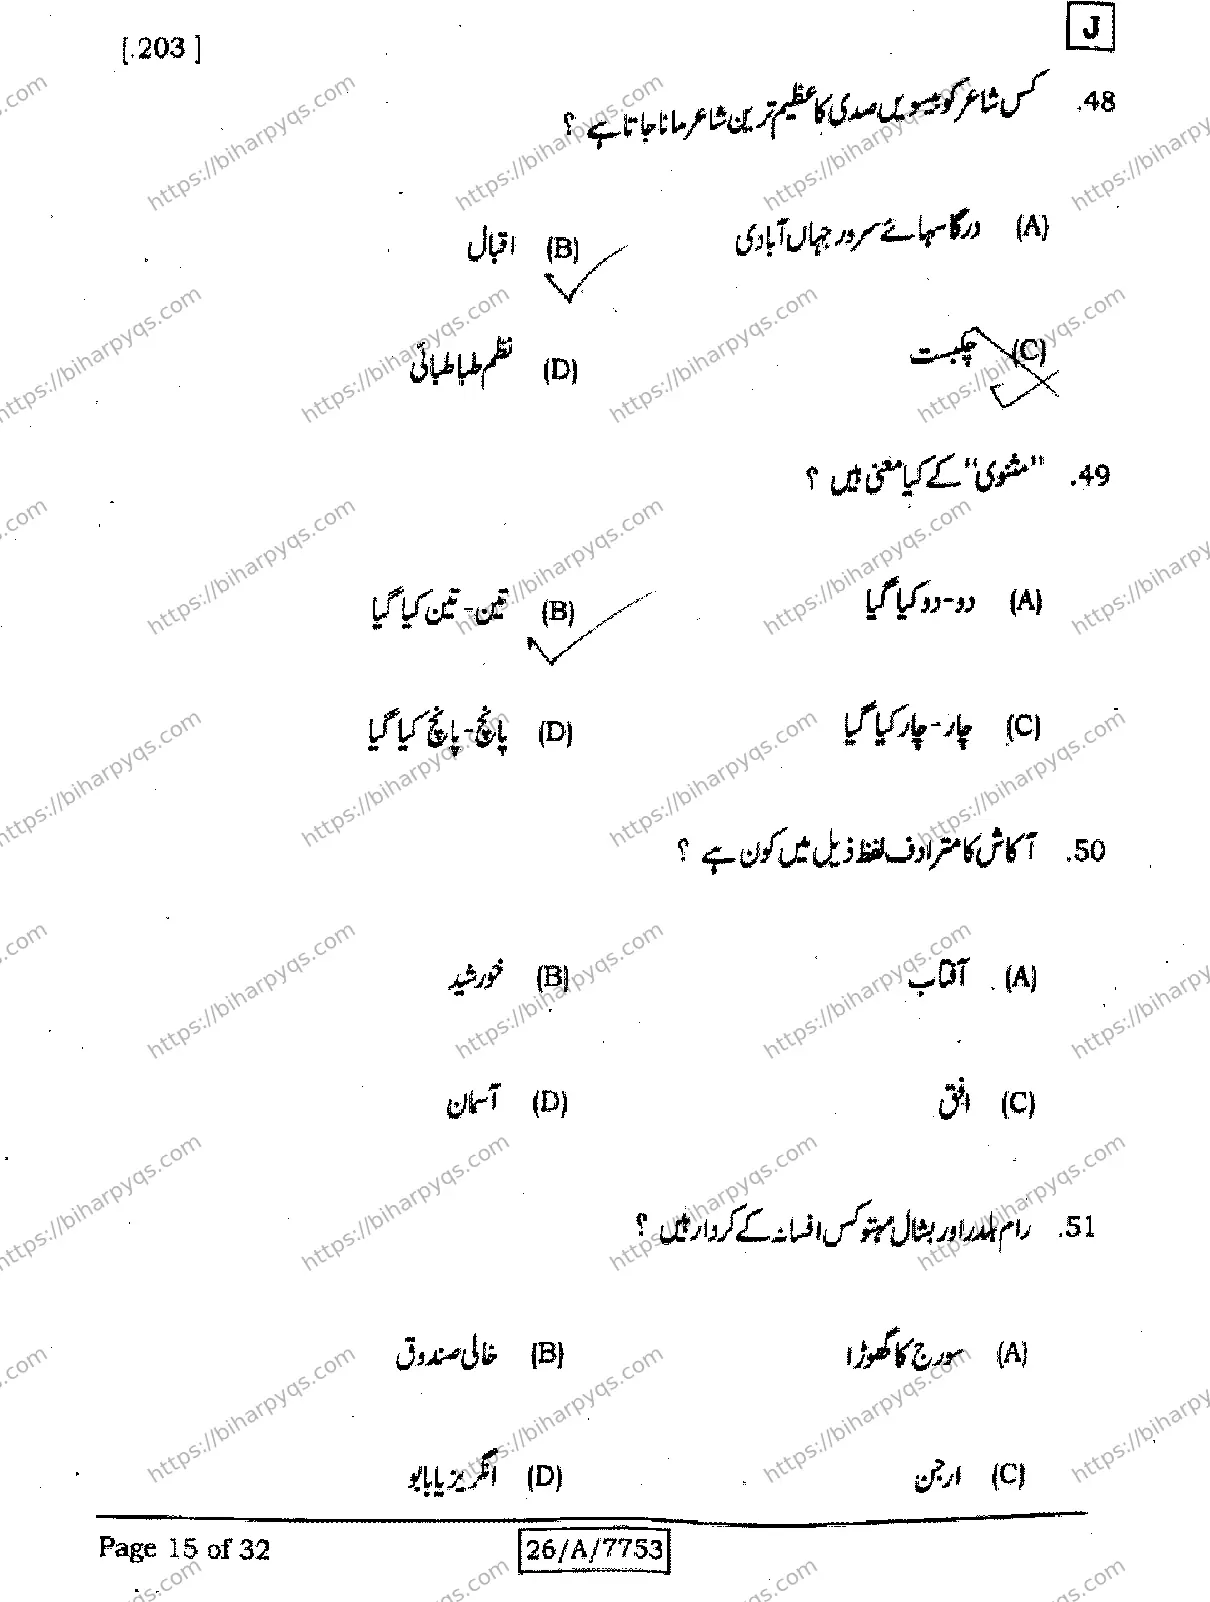 [.203 ]
J
48. کس شاعر کو بیسویں صدی کا عظیم ترین شاعر مانا جاتا ہے ؟
(A) درگا سہائے سرور جہاں آبادی
(B) اقبال
(C) چکبست
(D) نظم طباطبائی
49. "مثنوی" کے کیا معنی ہیں ؟
(A) دو-دو کیا گیا
(B) تین-تین کیا گیا
(C) چار-چار کیا گیا
(D) پانچ-پانچ کیا گیا
50. آکاش کا مترادف لفظ ذیل میں کون ہے ؟
(A) آفتاب
(B) خورشید
(C) افق
(D) آسمان
51. رام بلدر اور بشال مہتو کس افسانہ کے کردار ہیں ؟
(A) سورج کا گھوڑا
(B) خالی صندوق
(C) ارجن
(D) انگریزیا بابو
Page 15 of 32
26/A/7753
https://biharpyqs.com